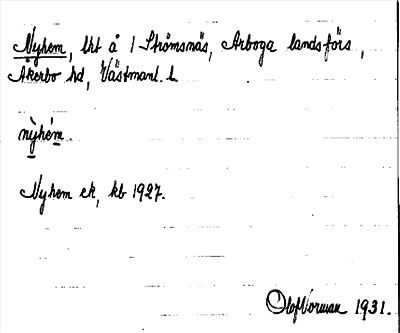 Nyhem, lht å 1 Strömsnäs, Arboga landsförs,
Åkerbo hd, Västmanl. l.
nỳhém.
Nyhem ek, kb 1927.
Olof Norman 1931.